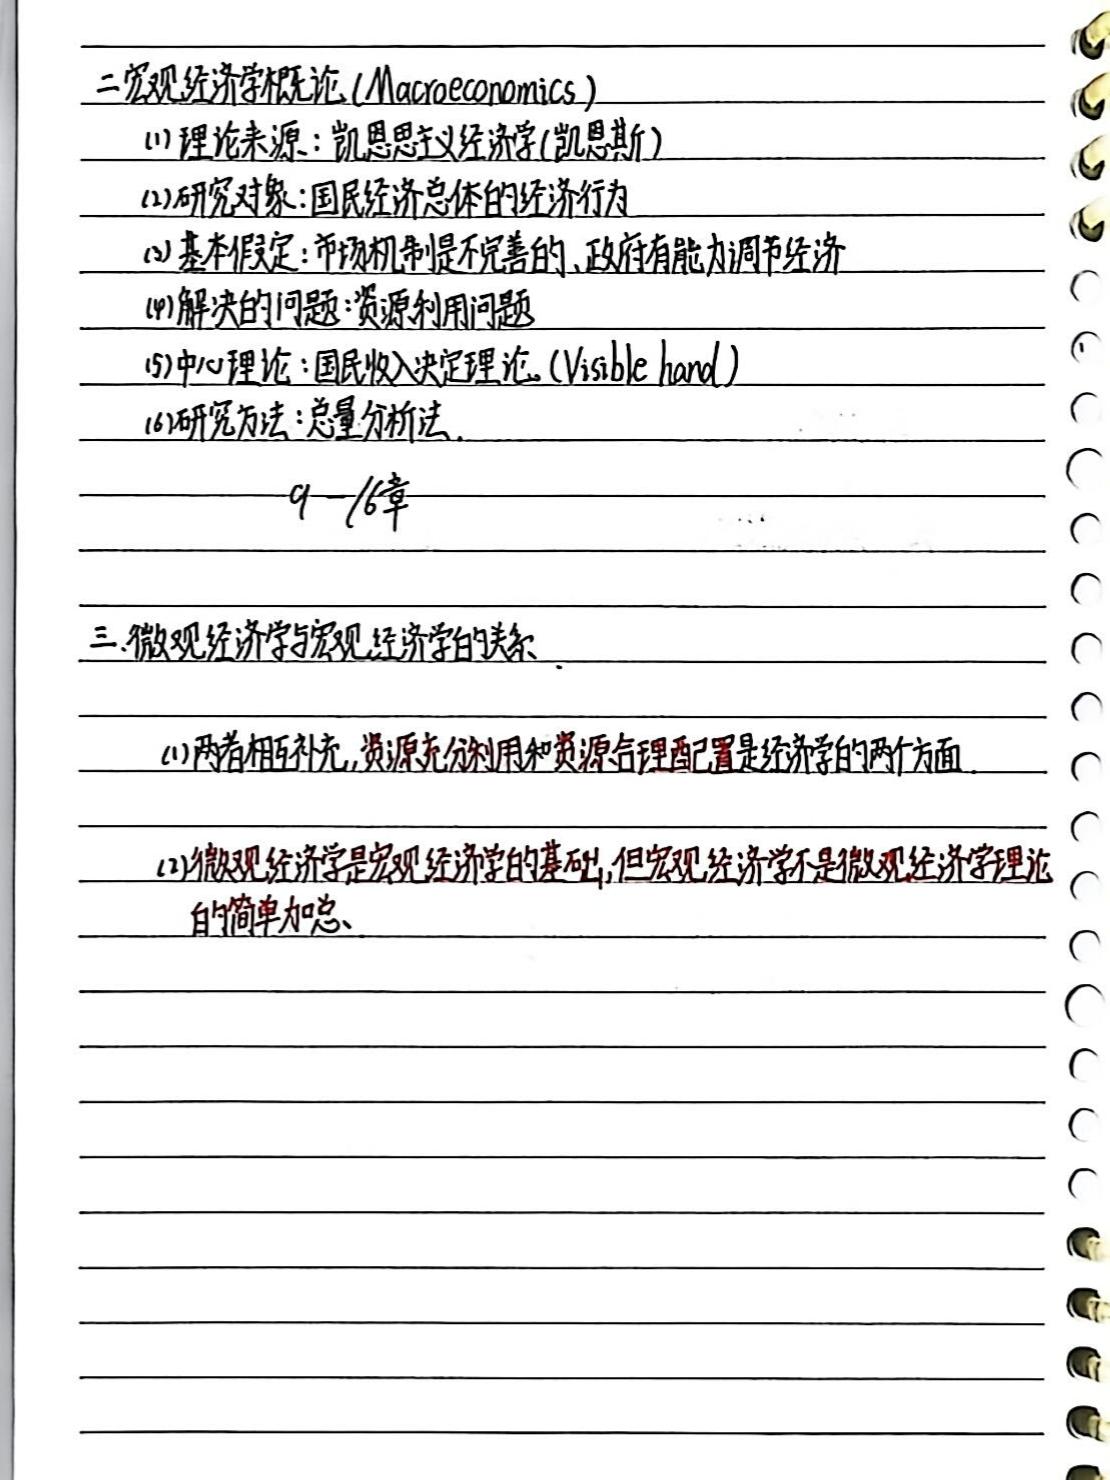 二宏观经济学概论(Macroeconomics)
(1)理论来源:凯恩思主义经济学(凯恩斯)
(2)研究对象:国民经济总体的经济行为
(3)基本假定:市场机制是不完善的、政府有能力调节经济
(4)解决的问题:资源利用问题
(5)中心理论:国民收入决定理论。(Visible hand)
(6)研究方法:总量分析法.
9—16章
三.微观经济学与宏观经济学的关系.
(1)两者相互补充,资源充分利用和资源合理配置是经济学的两个方面.
(2)微观经济学是宏观经济学的基础,但宏观经济学不是微观经济学理论
的简单加总、